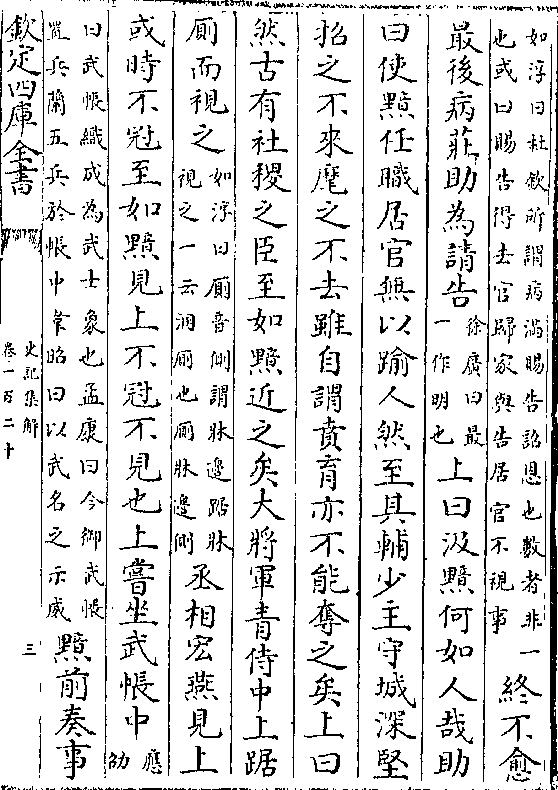 如淳曰杜欽所謂病滿賜告詔恩也數者非一
也或曰賜告得去官歸家與告居官不視事
終不愈
最後病莊助為請告
徐廣曰最
一作明也
上曰汲黯何如人哉助
曰使黯任職居官無以踰人然至其輔少主守城深堅
招之不來麾之不去雖自謂賁育亦不能奪之矣上曰
然古有社稷之臣至如黯近之矣大將軍青侍中上踞
厠而視之
如淳曰厠音側謂牀邊踞牀
視之一云溷厠也厠牀邊側
丞相宏燕見上
或時不冠至如黯見上不冠不見也上嘗坐武帳中
應
劭
曰武帳織成為武士象也孟康曰今御武帳
置兵蘭五兵於帳中韋昭曰以武名之示威
黯前奏事
欽定四庫全書
史記集解
卷一百二十
三